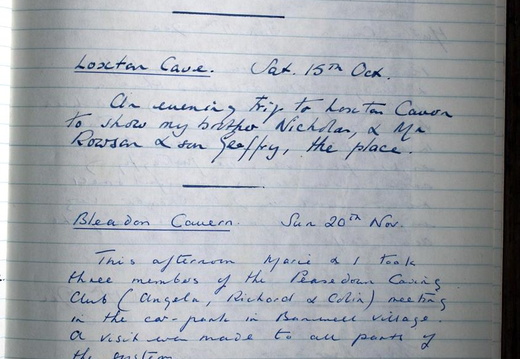 Loxton Cave. Sat. 15th Oct.
An evening trip to Loxton Cavern
to show my brother Nicholas, & Mr
Rowsan & son Geoffry, the place.
Bleadon Cavern. Sun 20th Nov.
This afternoon Marie & I took
three members of the Peasedown Caving
Club (Angela, Richard & Colin) meeting
in the car-park in Banwell village.
A visit was made to all parts of
the system